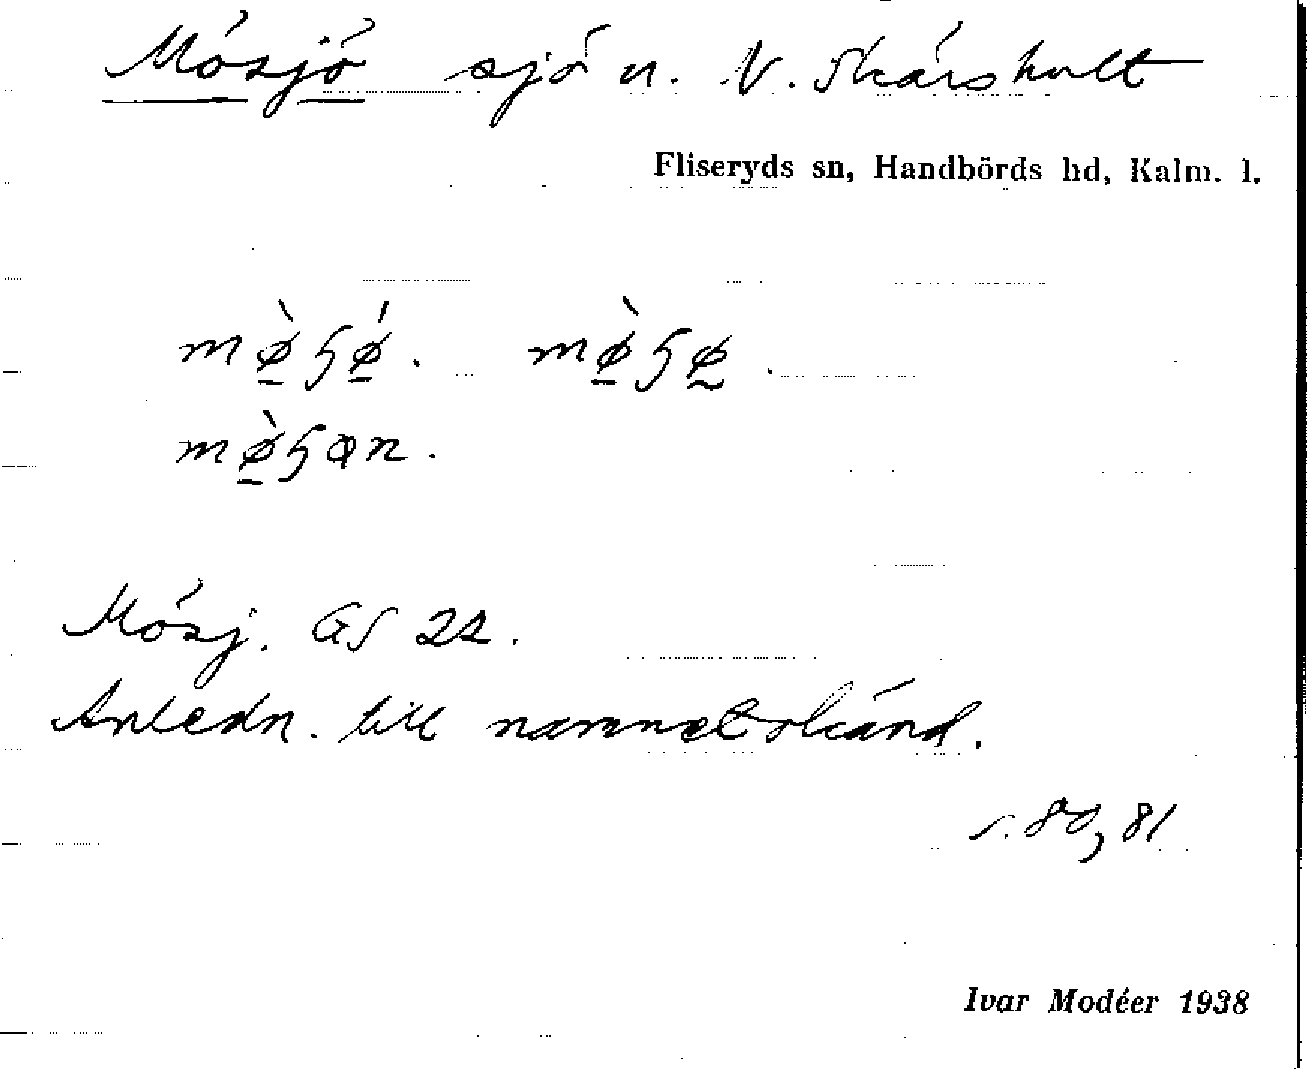 Mösjö sjö n. N. Skärshult
Fliseryds sn, Handbörds hd, Kalm. l.
mø̀ɧǿ. mø̀ɧø.
mø̀ɧɑn.
Mösj. GS 22.
Anledn. till namnet okänd.
s. 80, 81
Ivar Modéer 1938